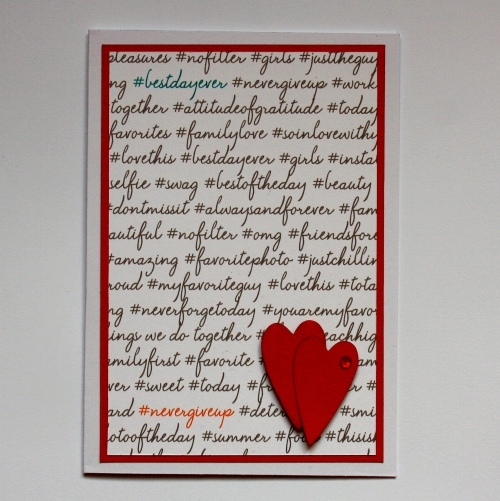 pleasures #nofilter #girls #justtheguy
ng #bestdayever #nevergiveup #work
together #attitudeofgratitude #today
favorites #familylove #soinlovewithy
#lovethis #bestdayever #girls #insta
selfie #swag #bestoftheday #beauty
#dontmissit #alwaysandforever #fam
autiful #nofilter #omg #friendsfore
#amazing #favoritephoto #justchillin
roud #myfavoriteguy #lovethis #tota
ng #neverforgetoday #youaremyfavo
ings we do together # eachhig
amilyfirst #favorite #
ver #sweet #today #f #
ard #nevergiveup #deter #smi
otooftheday #summer #foo #thisis